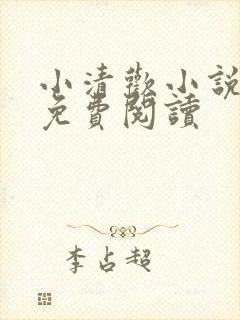 小清歡小說
免費閱讀
李占超